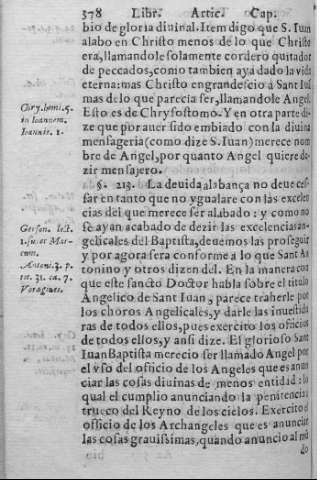 378 Libr. Artic. Cap.
bio de gloria diuinal. Item digo que S. Iuan
alabo en Christo menos de lo que Christo
era, llamandole solamente cordero quitador
de peccados, como tambien aya dado la vida
eterna: mas Christo engrandescio a Sant Iuā
mas de lo que parecia ser, llamandole Angel
Esto es de Chrysostomo. Y en otra parte di-
ze que por auer sido embiado con la diuina
mensageria (como dize S. Iuan) merece nom
bre de Angel, por quanto Angel quiere de-
zir mensajero.
Chry. homi. 5.
in Ioannem.
Ioannis. 1.
§. 213. La deuida alabança no deue ces-
sar en tanto que no ygualare con las excelen
cias del que merece ser alabado: y como no
se ayan acabado de dezir las excelencias an-
gelicales del Baptista, deuemos las proseguir
y por agora sera conforme a lo que Sant An
tonino y otros dizen del. En la manera con
que este sancto Doctor habla sobre el titulo
Angelico de Sant Iuan, parece traherle por
los choros Angelicales, y darle las inuestidu
ras de todos ellos, pues exercito los officios
de todos ellos, y ansi dize. El glorioso Sant
Iuan Baptista merecio ser llamado Angel por
el vso del officio de los Angeles que es anun
ciar las cosas diuinas de menos entidad: lo
qual el cumplio anunciando la penitencia a
trueco del Reyno de los cielos. Exercito el
officio de los Archangeles que es anunciar
las cosas grauissimas, quando anuncio al mū
do
Gerson. lect.
1. super Mar-
cum.
Antoni. 3. p.
tit. 31. ca. 7.
Voragines.